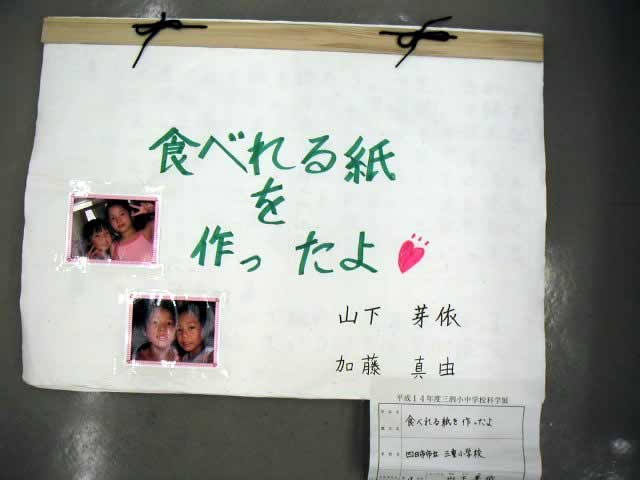 食べれる紙
を
作ったよ
山下 芽依
加藤 真由
平成14年度三泗小中学校科学展
食べれる紙を作ったよ
四日市市立 三重小学校
山下芽依